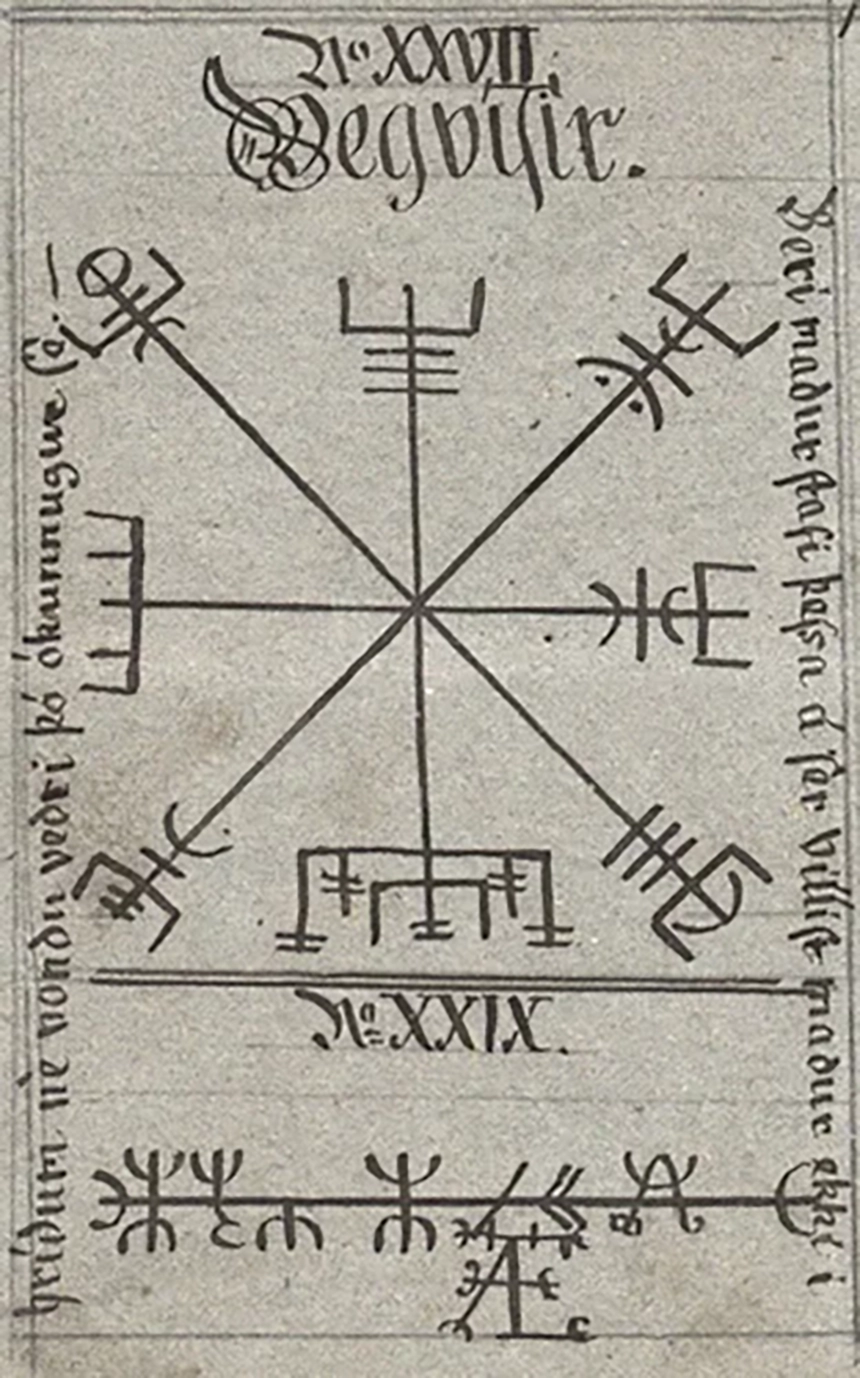 No XXVII.
Vegvísir.
Beri madur stafi þessa á sér villist madur ekki i
hrídum né vondu vedri þó ókunnugur sé. —
No XXIX.